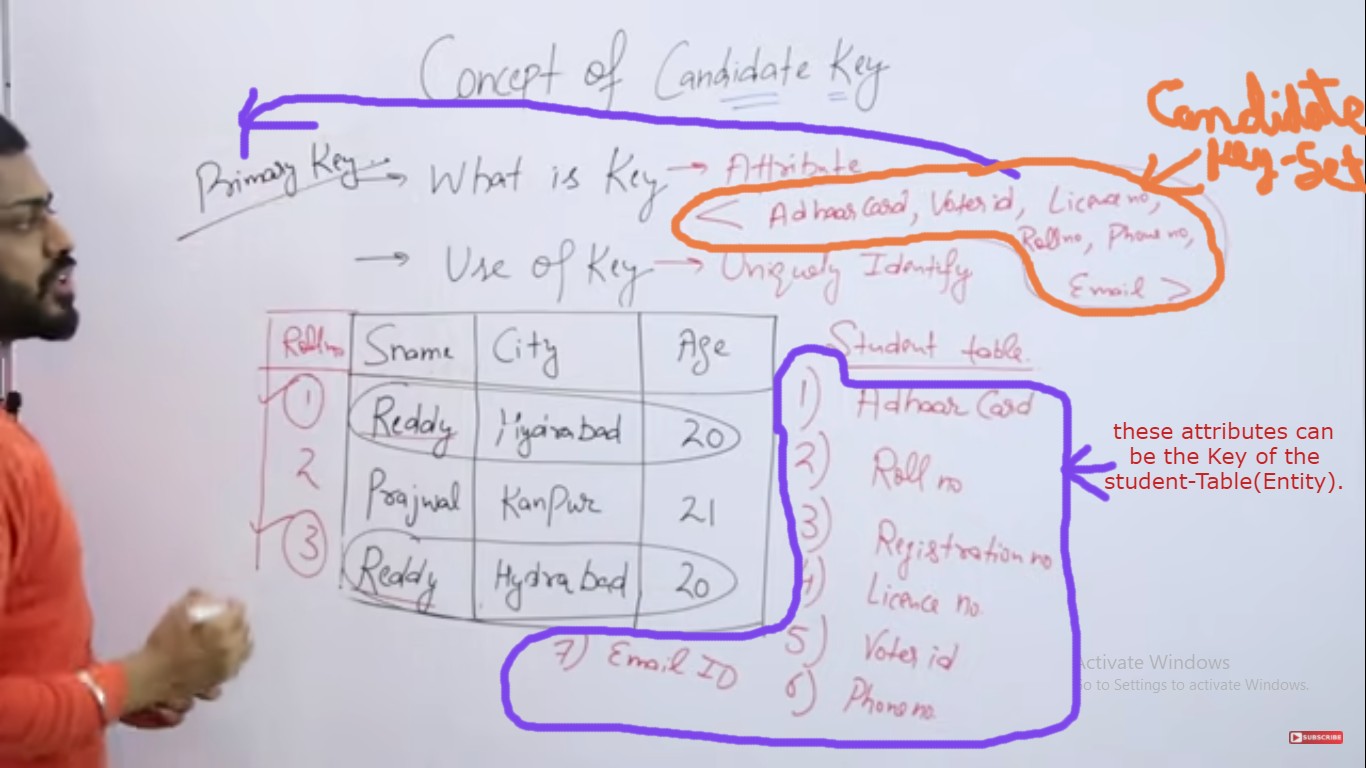 Concept of Candidate Key
Candidate
Key-Set
Primary Key → What is Key → Attribute
< Adhaar Card, Voter id, Licence no,
Roll no, Phone no,
Email >
→ Use of Key → Uniquely Identify
Student table
Roll no Sname City Age
1 Reddy Hydrabad 20
2 Prajwal Kanpur 21
3 Reddy Hydrabad 20
1) Adhaar Card
2) Roll no
3) Registration no
4) Licence no.
5) Voter id
6) Phone no.
7) Email ID
these attributes can
be the Key of the
student-Table(Entity).
Activate Windows
Go to Settings to activate Windows.
SUBSCRIBE